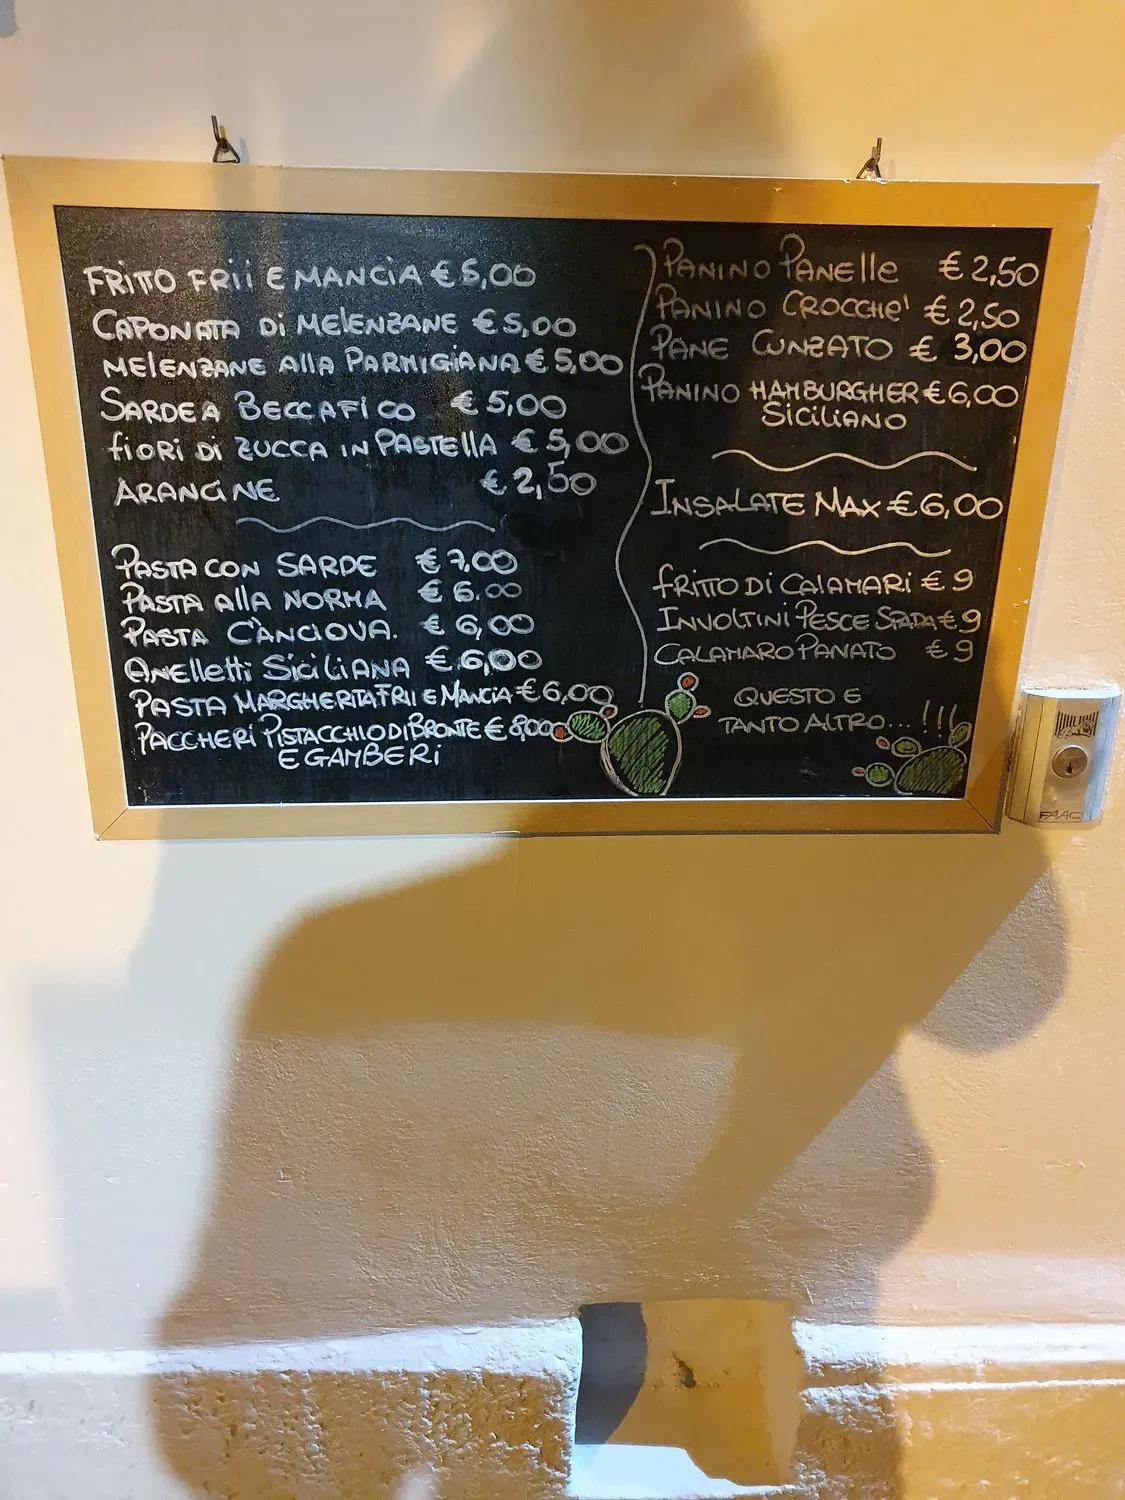 FRITTO FRII E MANCIA € 5,00
CAPONATA DI MELENZANE € 5,00
MELENZANE ALLA PARMIGIANA € 5,00
SARDE A BECCAFICO € 5,00
FIORI DI ZUCCA IN PASTELLA € 5,00
ARANCINE € 2,50
PASTA CON SARDE € 7,00
PASTA ALLA NORMA € 6.00
PASTA C'ANCIOVA. € 6,00
ANELLETTI SICILIANA € 6,00
PASTA MARGHERITA FRII E MANCIA € 6,00
PACCHERI PISTACCHIO DI BRONTE € 8,00
E GAMBERI
PANINO PANELLE € 2,50
PANINO CROCCHE' € 2,50
PANE CUNZATO € 3,00
PANINO HAMBURGHER € 6,00
SICILIANO
INSALATE MAX € 6,00
FRITTO DI CALAMARI € 9
INVOLTINI PESCE SPADA € 9
CALAMARO PANATO € 9
QUESTO E
TANTO ALTRO...!!!
FAAC